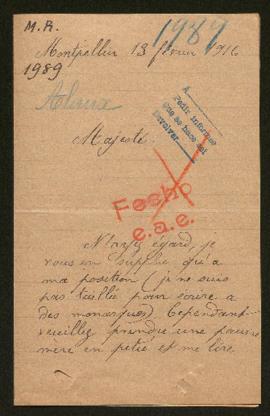 M.R.
1989
Montpellier 13 février 1916
1989
Majesté
A
Pedir informes
que se hace del
Fecho
e.a.e.
N'ayez égard, je
vous en supplie qu'a
ma position (je ne suis
pas taillée pour écrire a
des monarques). Cependant
veuillez prendre une pauvre
mère en pitié et me lire.